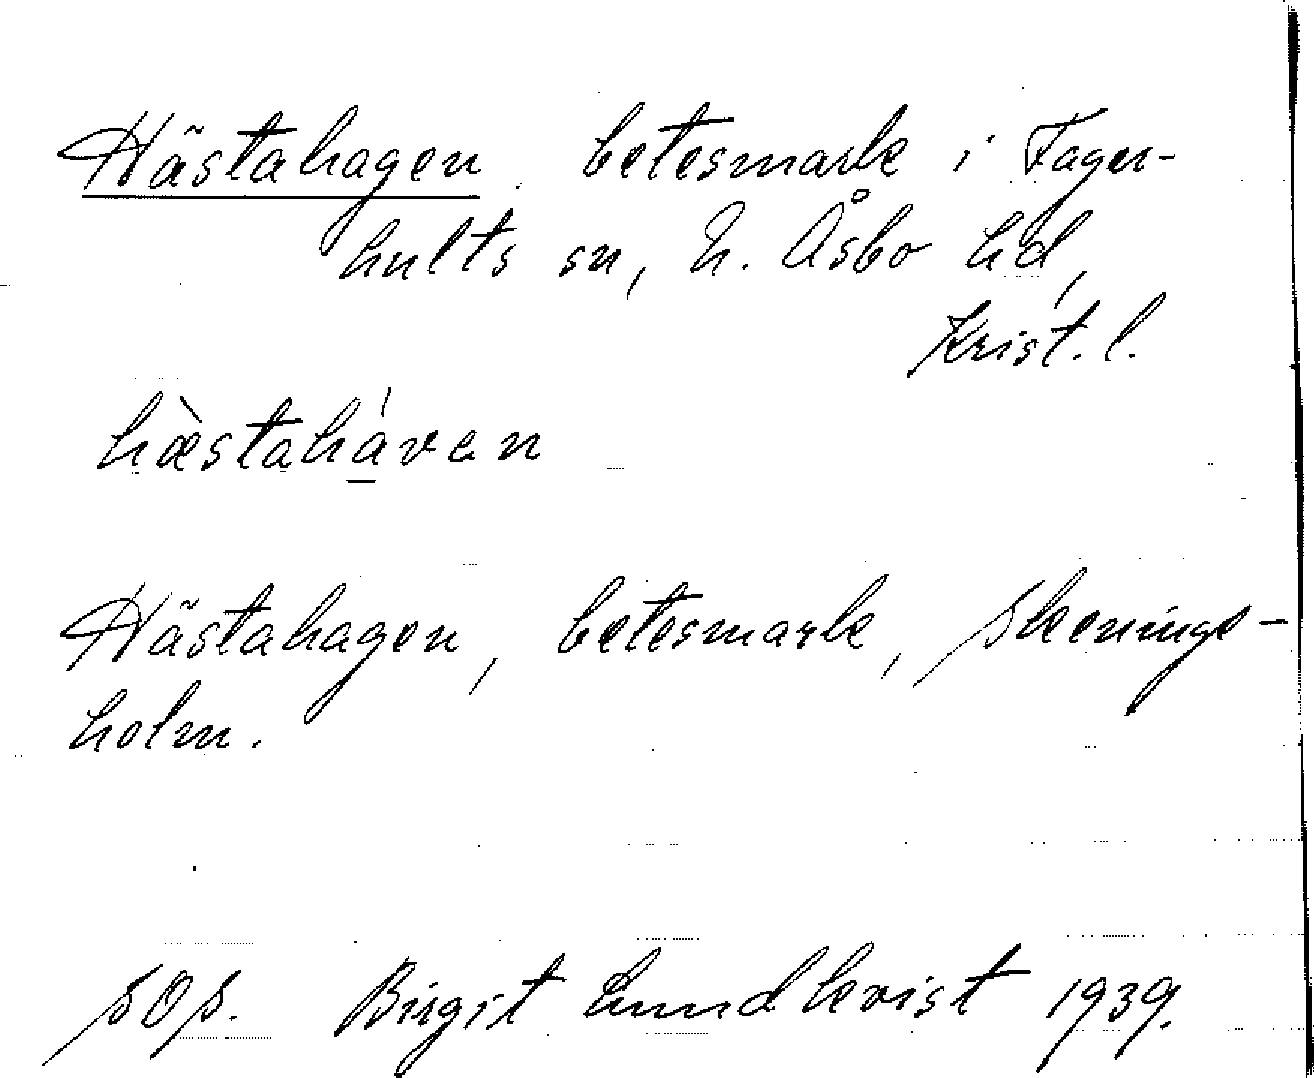 Hästahagen, betesmark i Fager-
hults sn, N. Åsbo hd,
Krist. l.
hæ̀stahávan
Hästahagen, betesmark, Skenings-
holm.
SOS. Birgit Lundkvist 1939.